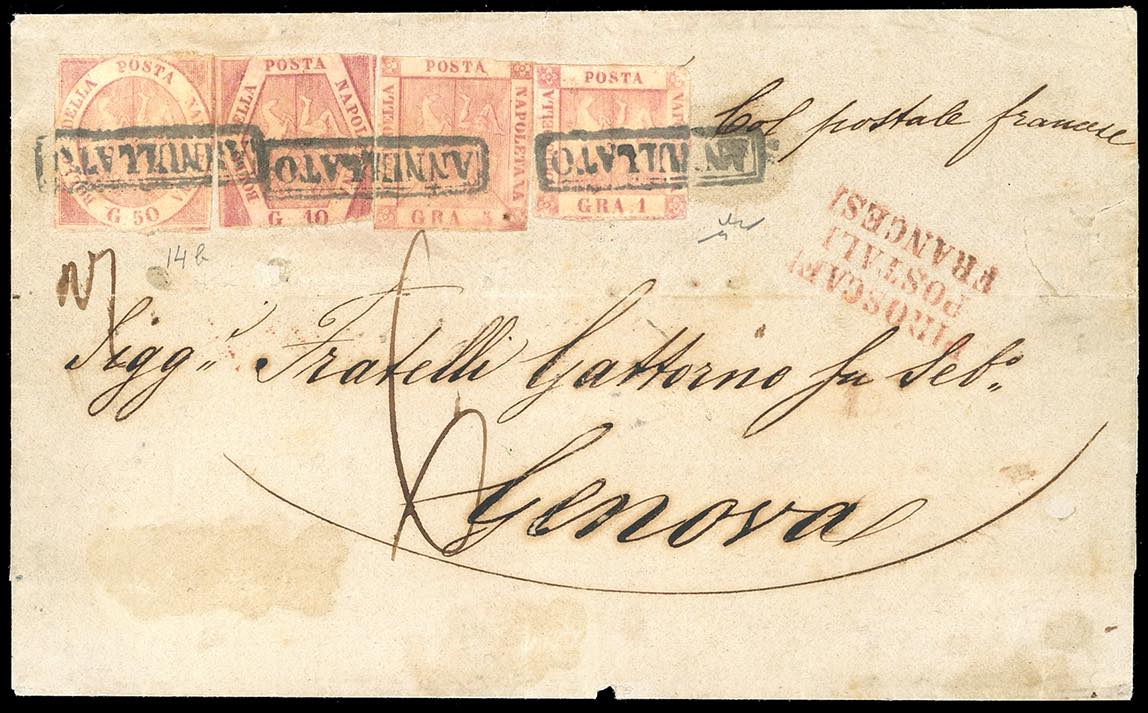 BOLLO DELLA POSTA NAPOLETANA
G 50
BOLLO DELLA POSTA NAPOLETANA
G 10
DELLA POSTA NAPOLETANA
GRA 5
POSTA
GRA 1
ANNULLATO ANNULLATO ANNULLATO ANNULLATO ANNULLATO
Col postale francese
PIROSCAFI
POSTALI
FRANCESI
14b
Sigg.i Fratelli Gattorno fu Seb.o
6
Genova